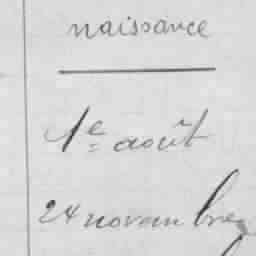 naissance
1e août
24 novembre